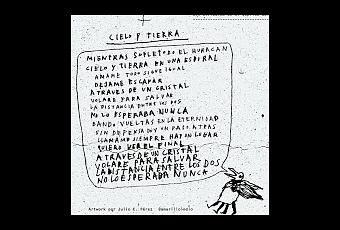 CIELO Y TIERRA
MIENTRAS SOPLE TODO EL HURACAN
CIELO Y TIERRA EN UNA ESPIRAL
AMAME TODO SIGUE IGUAL
DEJAME ESCAPAR
ATRAVES DE UN CRISTAL
VOLARE PARA SALVAR
LA DISTANCIA ENTRE LOS DOS
NO LO ESPERABA NUNCA
DANDO VUELTAS EN LA ETERNIDAD
SIN DEFENSA DOY UN PASO ATRAS
LLAMAME SIEMPRE HAY UN LUGAR
QUIERO VER EL FINAL
ATRAVES DE UN CRISTAL
VOLARE PARA SALVAR
LA DISTANCIA ENTRE LOS DOS
NO LO ESPERABA NUNCA
Artwork por Julio C. Pérez